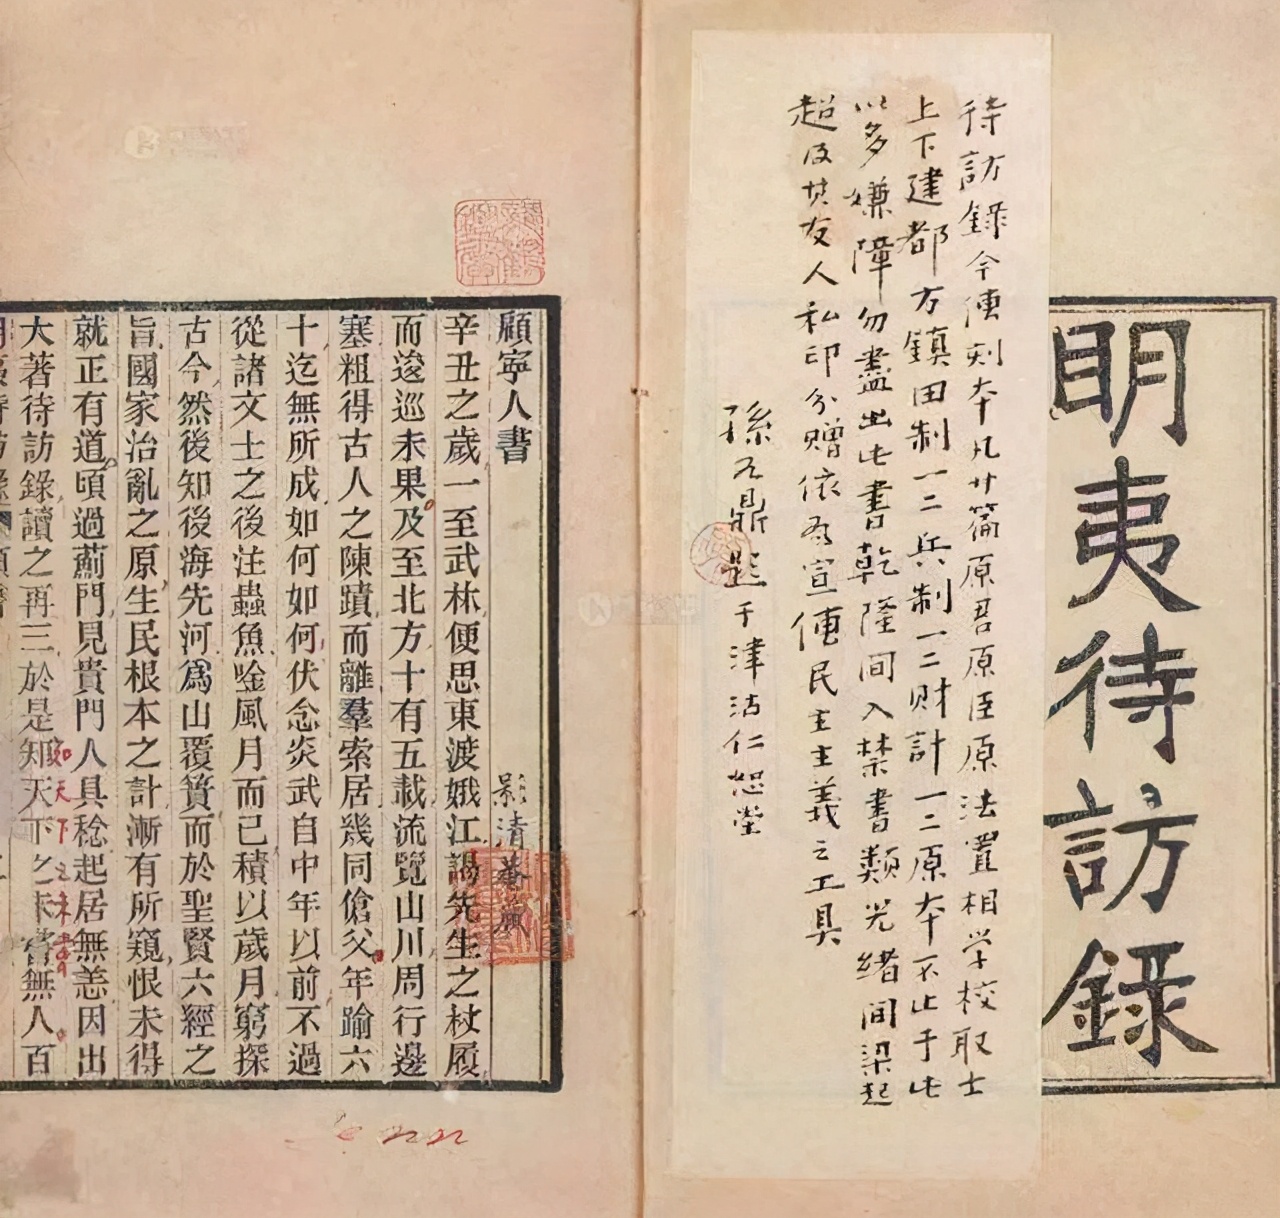 明夷待訪錄
待訪錄今傳刻本凡廿篇原君原臣原法置相学校取士
上下建都方鎮田制一二兵制一二財計一二原本不止于此
以多嫌障勿盡出此書乾隆间入禁書類光緒间梁起
超及其友人私印分赠依为宣傳民主主義之工具
孫鼎題于津沽仁恕堂
顧寧人書
影清菴藏
辛丑之歲一至武林便思東渡娥江謁先生之杖履
而逡巡未果及至北方十有五載流覽山川周行邊
塞粗得古人之陳蹟而離羣索居幾同傖父年踰六
十迄無所成如何如何伏念炎武自中年以前不過
從諸文士之後注蟲魚唫風月而已積以歲月窮探
古今然後知後海先河爲山覆簣而於聖賢六經之
旨國家治亂之原生民根本之計漸有所窺恨未得
就正有道頃過薊門見貴門人具稔起居無恙因出
大著待訪錄讀之再三於是知天下之未嘗無人百
知天下之未嘗